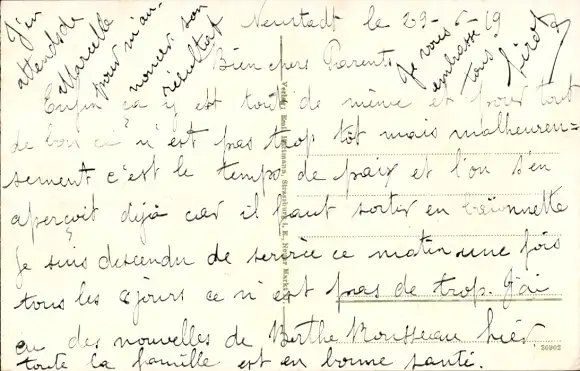 Neustadt le 29-6-19
Bien chers Parents
Enfin ça y est tout de même et pour tout
de bon ce n'est pas trop tôt mais malheureu=
sement c'est le temps de paix et l'on s'en
aperçoit déjà car il faut sortir en baïonnette
Je suis descendu de service ce matin une fois
tous les 2 jours ce n'est pas de trop. J'ai
eu des nouvelles de Berthe Rousseau hier
toute la famille est en bonne santé.
J'en
attends de
Marcelle
pour m'an-
noncer son
résultat
Je vous
embrasse
tous
Verlag: Emil Hartmann, Strassburg i. E., Neuer Markt
36902